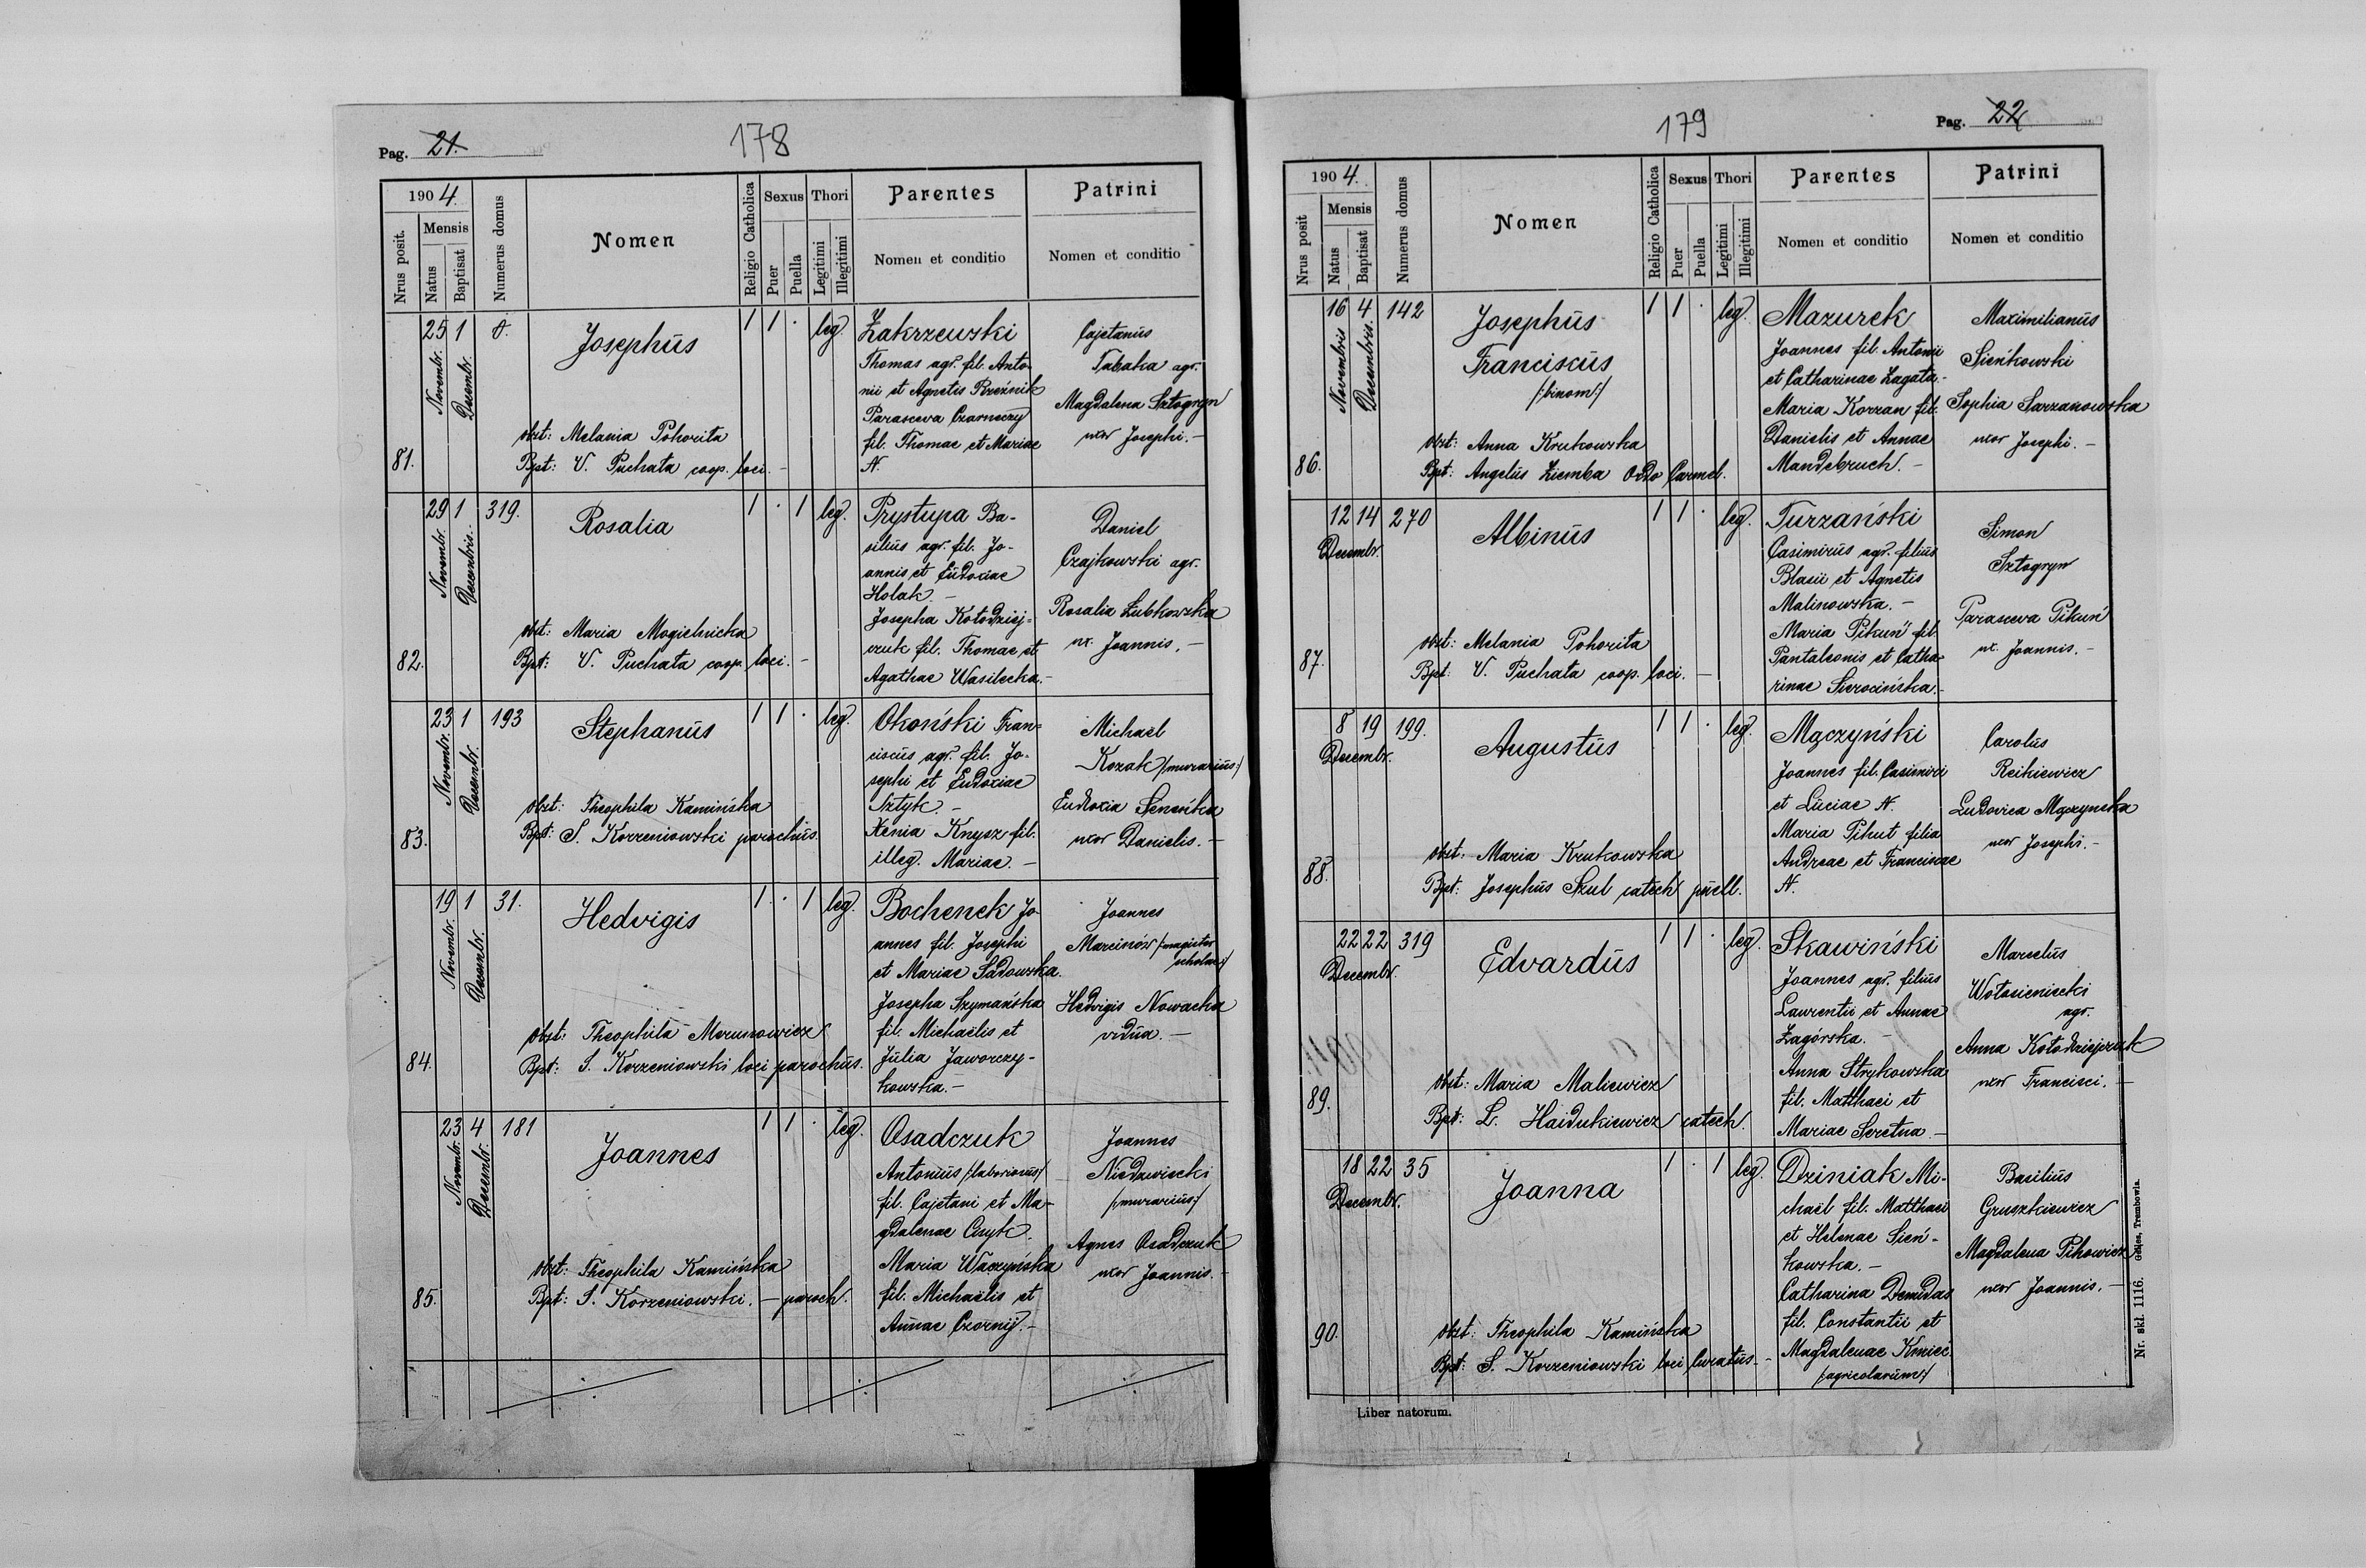 Pag. 21.
178
1904
Nrus posit.
Mensis
Natus
Baptisat
Numerus domus
Nomen
Religio Catholica
Sexus
Puer
Puella
Thori
Legitimi
Illegitimi
Parentes
Nomen et conditio
Patrini
Nomen et conditio
81.
25 Novembr.
1 Decembr.
Josephus
1 1 · leg.
Zakrzewski
Thomas agr. fil. Anto-
nii et Agnetis Rzeźnik
Parasceva Czarneczy
fil. Thomae et Mariae
N.
Cajetanus
Tabaka agr.
Magdalena Sztogryn
uxor Josephi. -
obst: Melania Pohorita
Bpt: V. Puchata coop. loci. -
82.
29 Novembr.
1 Decembris.
319.
Rosalia
1 · 1 leg.
Prystupa Ba-
silius agr. fil. Jo-
annis et Eudoxiae
Holak. -
Josepha Kołodziej-
czuk fil. Thomae et
Agathae Wasilecka. -
Daniel
Czajkowski agr.
Rosalia Lubkowska
ux. Joannis. -
obst: Maria Mogielnicka
Bpt: V. Puchata coop. loci. -
83.
23 Novembr.
1 Decembr.
193
Stephanus
1 1 · leg.
Okoński Fran-
ciscus agr. fil. Jo-
sephi et Eudoxiae
Sztyk. -
Xenia Knysz fil.
illeg. Mariae. -
Michael
Kozak /:murarius:/
Eudoxia
uxor Danielis. -
obst: Theophila Kamińska
Bpt: S. Korzeniowski parochus.
84.
19 Novembr.
1 Decembr.
31.
Hedvigis
1 · 1 leg.
Bochenek Jo-
annes fil. Josephi
et Mariae Sadowska.
Josepha Szymańska
fil. Michaelis et
Julia Jaworczy-
kowska. -
Joannes
Marcinów /:magister
scholae:/
Hedvigis Nowacka
vidua. -
obst: Theophila Morunowicz
Bpt: S. Korzeniowski loci parochus.
85.
23 Novembr.
4 Decembr.
181
Joannes
1 1 · leg.
Osadczuk
Antonius /:laboriosus:/
fil. Cajetani et Ma-
gdalenae Cisyk.
Maria Waczyńska
fil. Michaelis et
Annae Czornij. -
Joannes
Niedzwiecki
/:murarius:/
Agnes Osadczuk
uxor Joannis. -
obst: Theophila Kamińska
Bpt: S. Korzeniowski. - paroch.
179
Pag. 22
1904.
Nrus posit
Mensis
Natus
Baptisat
Numerus domus
Nomen
Religio Catholica
Sexus
Puer
Puella
Thori
Legitimi
Illegitimi
Parentes
Nomen et conditio
Patrini
Nomen et conditio
86.
16 Novembris
4 Decembris.
142
Josephus
Franciscus
/:binom:/
1 1 · leg.
Mazurek
Joannes fil. Antonii
et Catharinae Zagata. -
Maria Korzan fil.
Danielis et Annae
Mandebruch. -
Maximilianus
Sieńkowski
Sophia Sarzanowska
uxor Josephi. -
obst: Anna Krukowska
Bpt: Angelus Ziemba Ordo Carmel.
87.
12 14 270
Decembr.
Albinus
1 1 · leg.
Turzański
Casimirus agr. filius
Blasii et Agnetis
Malinowska. -
Maria Pikuń fil.
Pantaleonis et Catha-
rinae Sierocińska. -
Simon
Sztogryn
Parasceva Pikuń
ux. Joannis. -
obst: Melania Pohorita
Bpt: V. Puchata coop. loci. -
88.
8 19 199.
Decembr.
Augustus
1 1 · leg.
Mączyński
Joannes fil. Casimiri
et Luciae N.
Maria Pihut filia
Andreae et Franciscae
N.
Carolus
Reikiewicz
Ludovica Mączyńska
uxor Josephi. -
obst: Maria Krukowska
Bpt: Josephus Szul catech puell.
89.
22 22 319
Decembr.
Edvardus
1 1 · leg.
Skawiński
Joannes agr. filius
Laurentii et Annae
Zagórska. -
Anna Strykowska
fil. Matthaei et
Mariae Seretna -
Marcelius
Wołosieniecki
agr.
Anna Kołodziejczuk
uxor Francisci. -
obst: Maria Maliewicz
Bpt: L. Haidukiewicz catech.
90.
18 22 35
Decembr.
Joanna
1 · 1 leg.
Dziniak Mi-
chaël fil. Matthaei
et Helenae Sień-
kowska. -
Catharina Demidas
fil. Constantii et
Magdalenae Kmieć
/:agricolarum:/
Basilius
Gruszkiewicz
Magdalena Pihowicz
uxor Joannis. -
obst: Theophila Kamińska
Bpt: S. Korzeniowski loci Curatus. -
Liber natorum.
Nr. skł. 1116. Gelles, Trembowla.